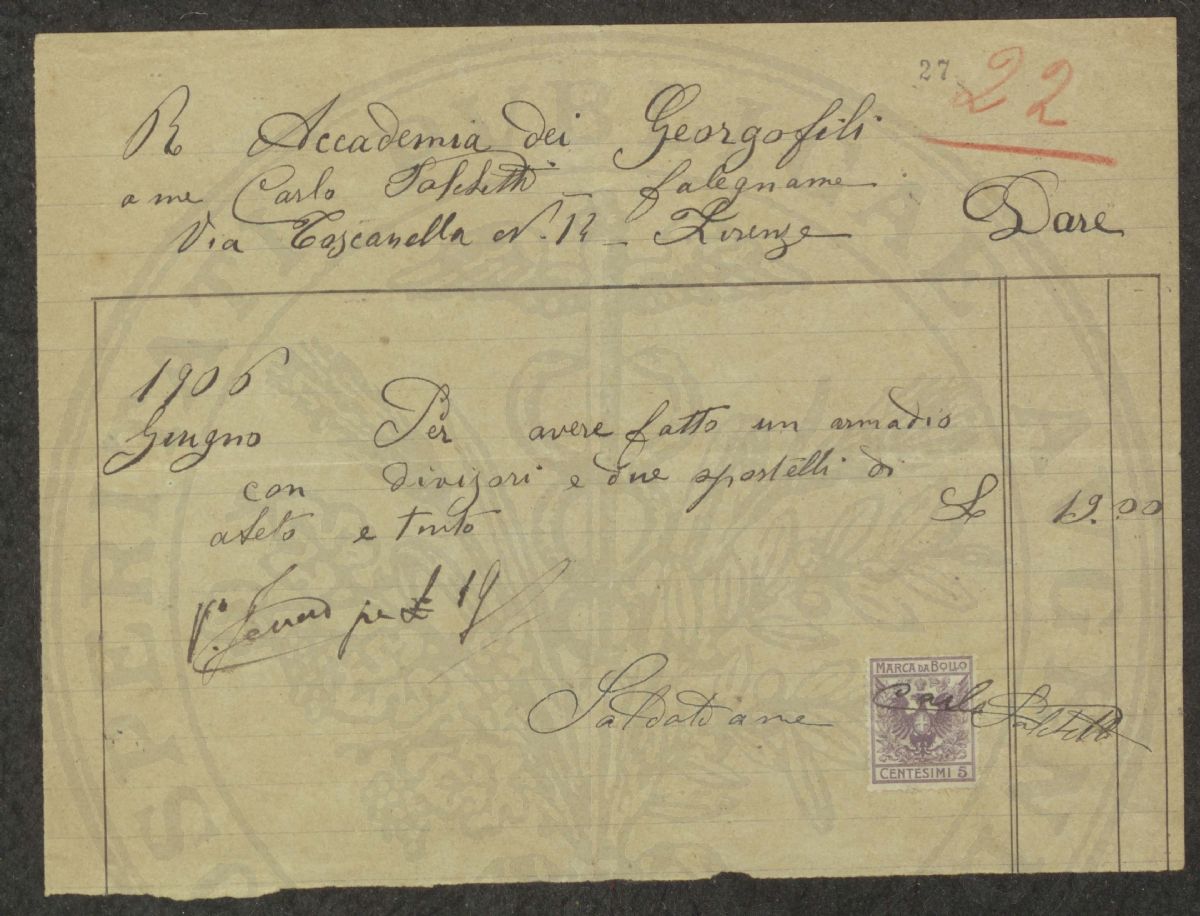 27 22
R Accademia dei Georgofili
a me Carlo falegname
Via Toscanella N. 12 - Firenze Dare
1906
Giugno Per avere fatto un armadio
con divisori e due sportelli di
abeto e tinto £ 19.00
per £ 19
Saldato a me Carlo
MARCA DA BOLLO
CENTESIMI 5